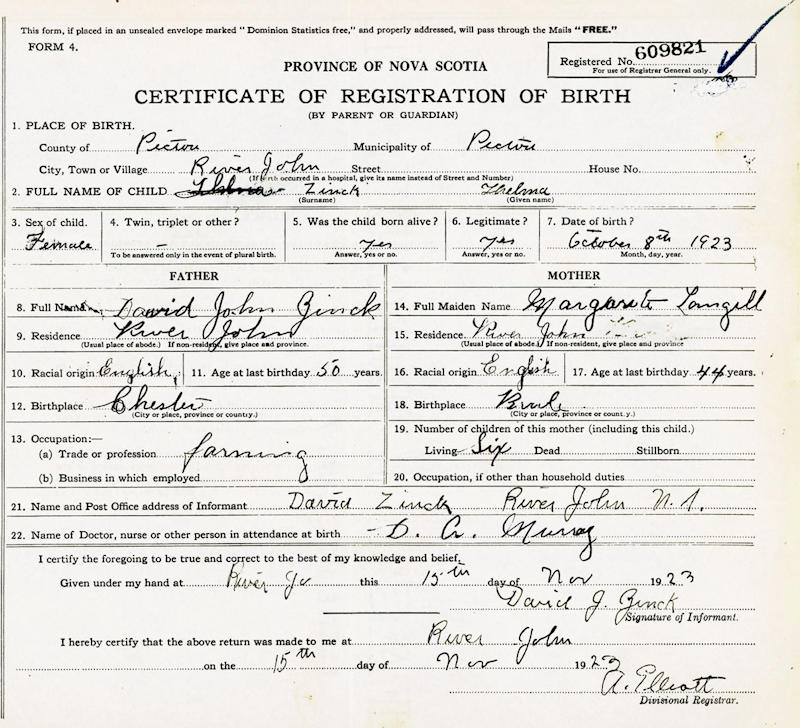 This form, if placed in an unsealed envelope marked "Dominion Statistics free," and properly addressed, will pass through the Mails "FREE."
FORM 4.
Registered No. 609821
For use of Registrar General only.
PROVINCE OF NOVA SCOTIA
CERTIFICATE OF REGISTRATION OF BIRTH
(BY PARENT OR GUARDIAN)
1. PLACE OF BIRTH.
County of Pictou Municipality of Pictou
City, Town or Village River John Street House No.
(If birth occurred in a hospital, give its name instead of Street and Number)
2. FULL NAME OF CHILD Zinck Thelma
(Surname) (Given name)
3. Sex of child. 4. Twin, triplet or other? 5. Was the child born alive? 6. Legitimate? 7. Date of birth?
Female – yes yes October 8th 1923
To be answered only in the event of plural birth. Answer, yes or no. Answer, yes or no. Month, day, year.
FATHER MOTHER
8. Full Name David John Zinck 14. Full Maiden Name Margarete Langill
9. Residence River John 15. Residence River John
(Usual place of abode.) If non-resident, give place and province. (Usual place of abode.) If non-resident, give place and province
10. Racial origin English 11. Age at last birthday 50 years. 16. Racial origin English 17. Age at last birthday 44 years.
12. Birthplace Chester 18. Birthplace Brule
(City or place, province or country.) (City or place, province or country.)
13. Occupation:— 19. Number of children of this mother (including this child.)
(a) Trade or profession farming Living Six Dead Stillborn
(b) Business in which employed 20. Occupation, if other than household duties
21. Name and Post Office address of Informant David Zinck River John N.S.
22. Name of Doctor, nurse or other person in attendance at birth D. A. Murray
I certify the foregoing to be true and correct to the best of my knowledge and belief.
Given under my hand at River Jo this 15th day of Nov 1923
David J. Zinck
Signature of Informant.
I hereby certify that the above return was made to me at River John
on the 15th day of Nov 1923
A. Elliott
Divisional Registrar.